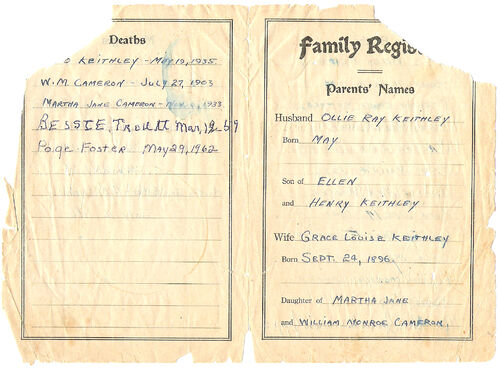 Deaths
KEITHLEY - MAY 19, 1935
W.M. CAMERON - JULY 27, 1903
MARTHA JANE CAMERON - 1933
BESSIE, Mar, 12-59
Paige Foster MAY 29, 1962
Family Regis
Parents' Names
Husband OLLIE RAY KEITHLEY
Born MAY
Son of ELLEN
and HENRY KEITHLEY
Wife GRACE LOUISE KEITHLEY
Born SEPT. 24, 1896.
Daughter of MARTHA JANE
and WILLIAM MONROE CAMERON.